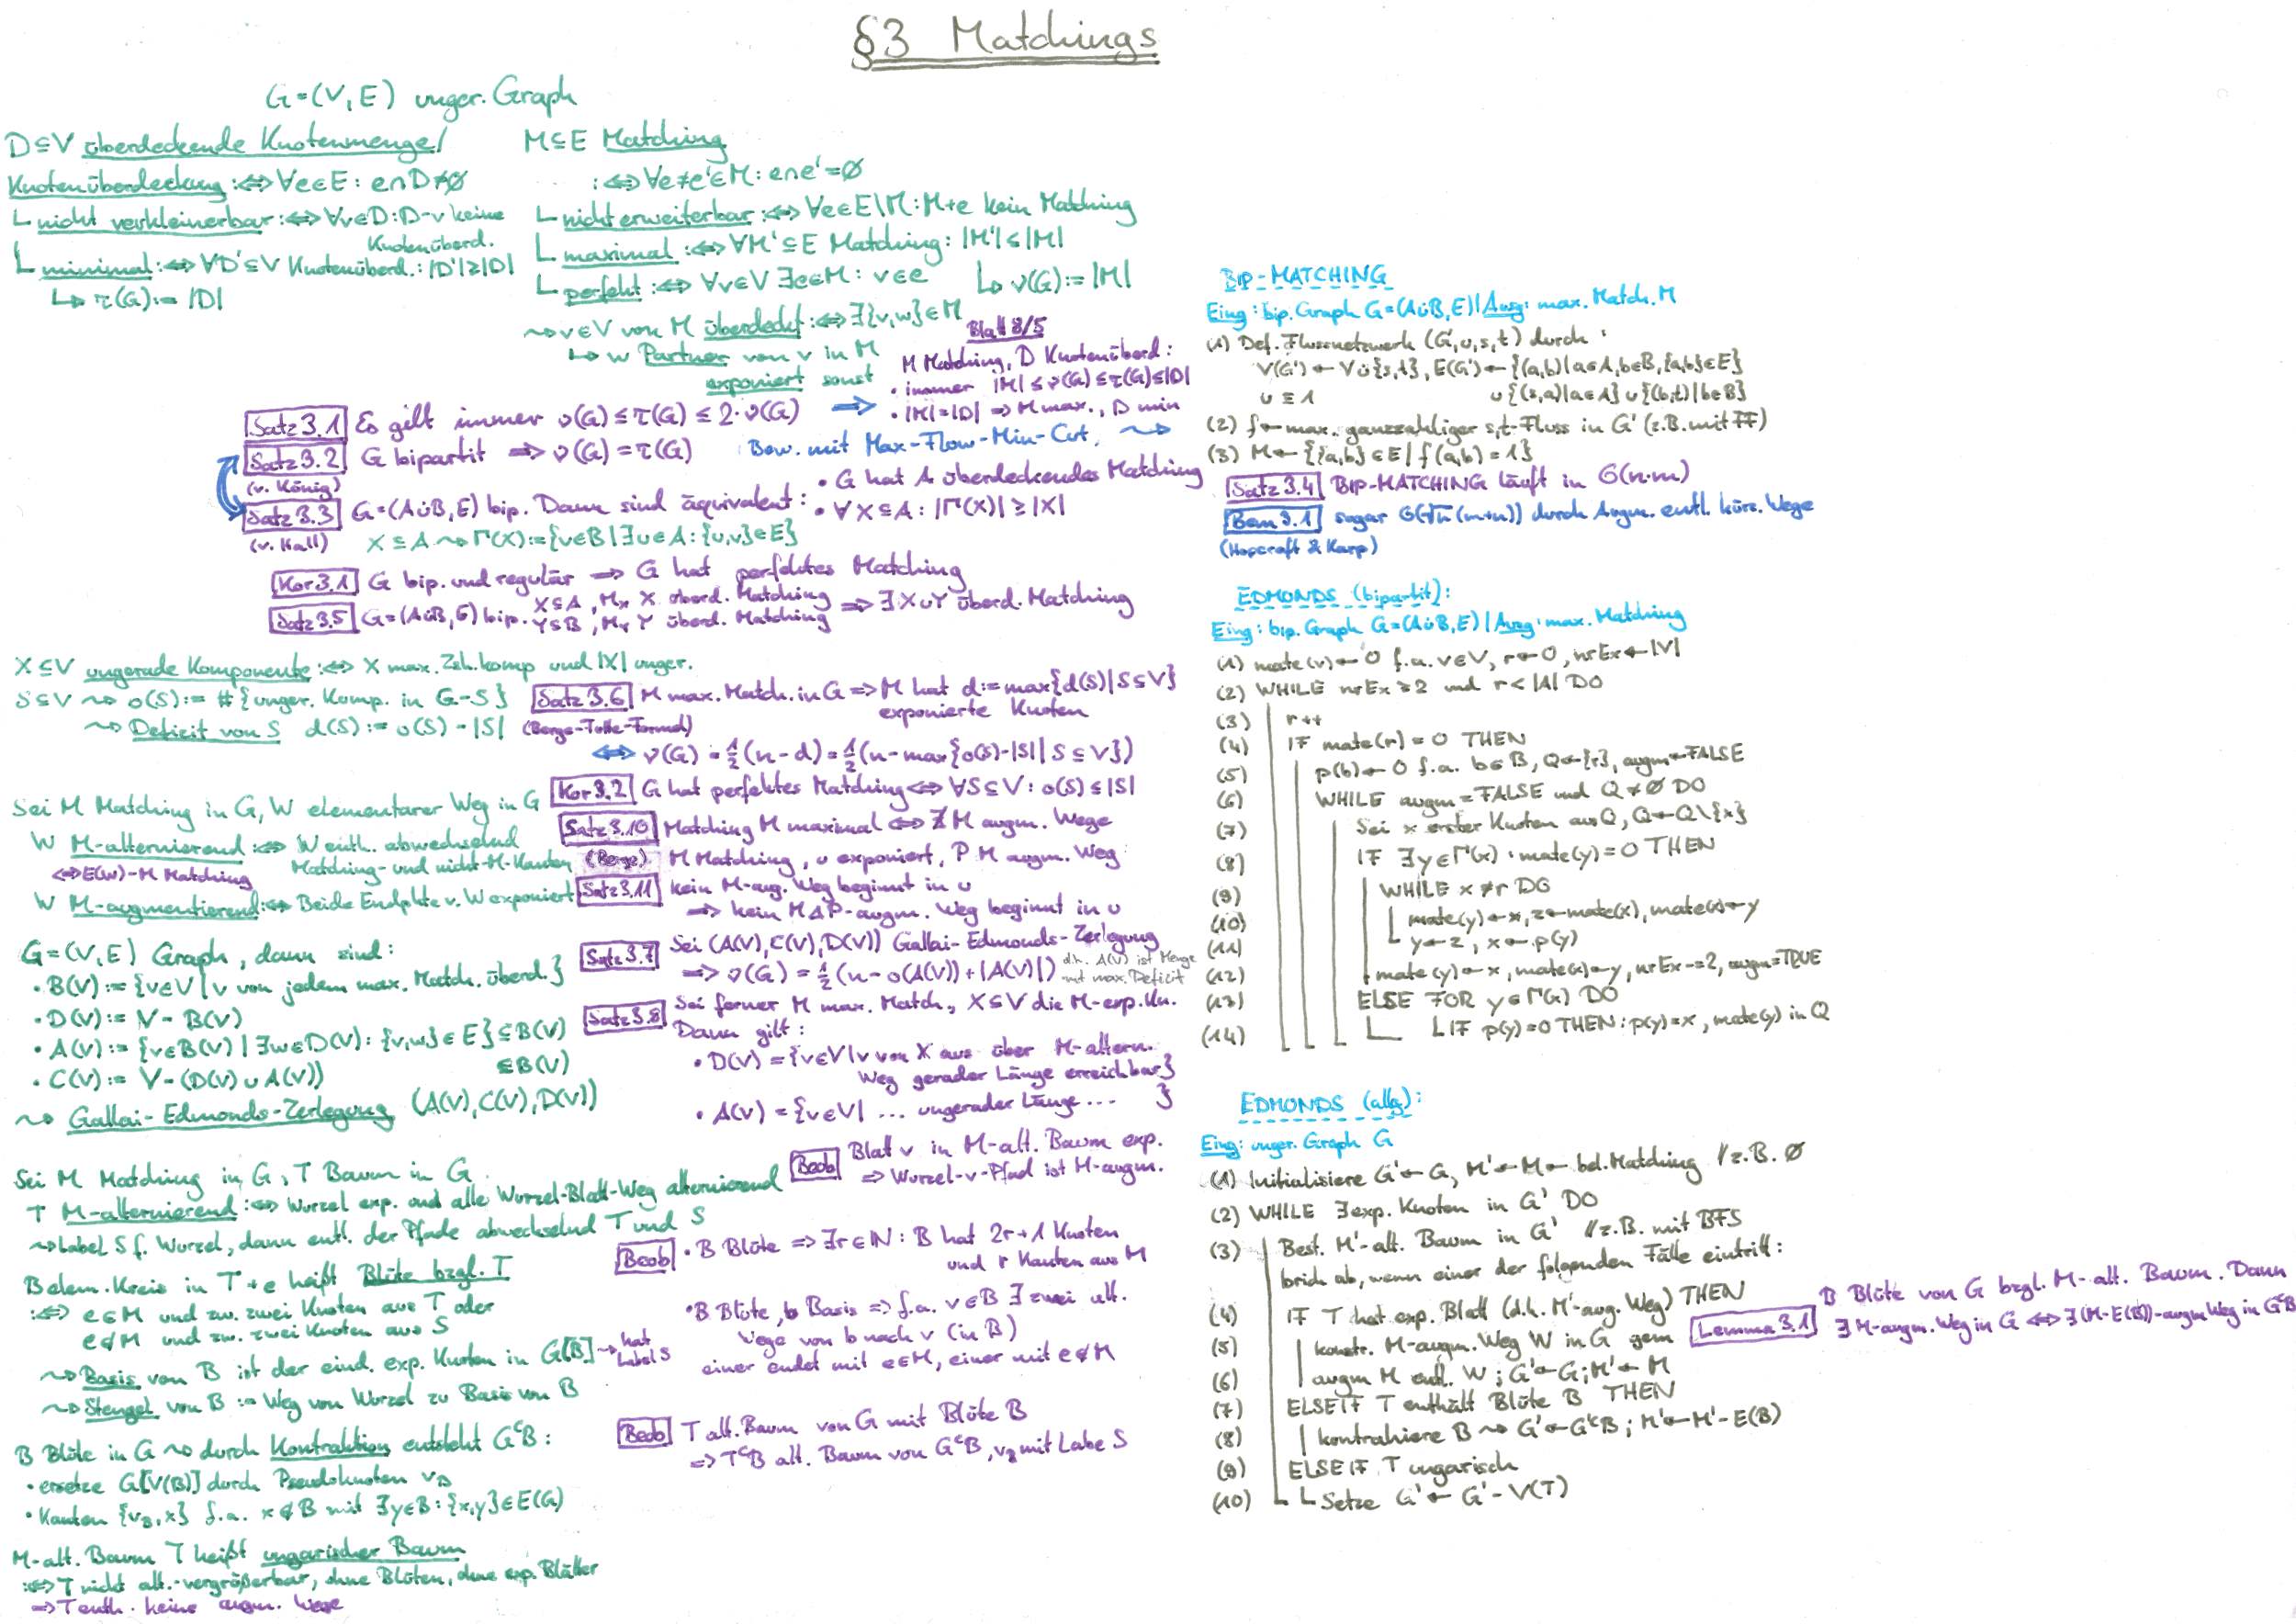 §3 Matchings
G=(V,E) unger. Graph
D⊆V überdeckende Knotenmenge/
Knotenüberdeckung :⇔ ∀e∈E: e∩D≠∅
↳ nicht verkleinerbar :⇔ ∀v∈D: D-v keine
Knotenüberd.
↳ minimal :⇔ ∀D'⊆V Knotenüberd.: |D'|≥|D|
↳ τ(G):= |D|
M⊆E Matching
:⇔ ∀e≠e'∈M: e∩e'=∅
↳ nicht erweiterbar :⇔ ∀e∈E\M: M+e kein Matching
↳ maximal :⇔ ∀M'⊆E Matching: |M'|≤|M|
↳ perfekt :⇔ ∀v∈V ∃e∈M: v∈e ↳ ν(G):= |M|
⇝ v∈V von M überdeckt :⇔ ∃{v,w}∈M
↳ w Partner von v in M
exponiert sonst
Blatt 8/5
M Matching, D Knotenüberd.:
• immer |M|≤ν(G)≤τ(G)≤|D|
• |M|=|D| ⇒ M max., D min
Satz 3.1 Es gilt immer ν(G) ≤ τ(G) ≤ 2·ν(G) ⇒
Satz 3.2 G bipartit ⇒ ν(G) = τ(G) Bew. mit Max-Flow-Min-Cut. ⇝
(v. König)
Satz 3.3 G=(A∪̇B,E) bip. Dann sind äquivalent: • G hat A überdeckendes Matching
• ∀X⊆A: |Γ(X)| ≥ |X|
(v. Hall) X⊆A ⇝ Γ(X):={v∈B | ∃u∈A: {u,v}∈E}
Kor 3.1 G bip. und regulär ⇒ G hat perfektes Matching
Satz 3.5 G=(A∪̇B,E) bip. X⊆A, M_X X überd. Matching
Y⊆B, M_Y Y überd. Matching ⇒ ∃ X∪Y überd. Matching
X⊆V ungerade Komponente :⇔ X max. Zsh.komp und |X| unger.
S⊆V ⇝ o(S):= #{unger. Komp. in G-S}
⇝ Deficit von S d(S):= o(S)-|S|
Satz 3.6 M max. Match. in G ⇒ M hat d:=max{d(S)|S⊆V}
exponierte Knoten
(Berge-Tutte-Formel)
⇔ ν(G) = ½(n-d) = ½(n-max{o(S)-|S| | S⊆V})
Kor 3.2 G hat perfektes Matching ⇔ ∀S⊆V: o(S)≤|S|
Satz 3.10 Matching M maximal ⇔ ∄ M augm. Wege
(Berge)
Satz 3.11 M Matching, u exponiert, P M augm. Weg
kein M-aug. Weg beginnt in u
⇒ kein MΔP-augm. Weg beginnt in u
Sei M Matching in G, W elementarer Weg in G
W M-alternierend :⇔ W enth. abwechselnd
Matching- und nicht-M-Kanten
⇔E(W)-M Matching
W M-augmentierend :⇔ Beide Endpkte v. W exponiert
G=(V,E) Graph, dann sind:
• B(V):= {v∈V | v von jedem max. Match. überd.}
• D(V):= V - B(V)
• A(V):= {v∈B(V) | ∃w∈D(V): {v,w}∈E} ⊆B(V)
• C(V):= V-(D(V)∪A(V)) ⊆B(V)
⇝ Gallai-Edmonds-Zerlegung (A(V),C(V),D(V))
Satz 3.7 Sei (A(V),C(V),D(V)) Gallai-Edmonds-Zerlegung
⇒ ν(G) = ½(n-o(A(V))+|A(V)|) d.h. A(V) ist Menge
mit max. Deficit
Satz 3.8 Sei ferner M max. Match., X⊆V die M-exp. Kn.
Dann gilt:
• D(V) = {v∈V | v von X aus über M-altern.
Weg gerader Länge erreichbar}
• A(V) = {v∈V | ... ungerader Länge ... }
Beob Blatt v in M-alt. Baum exp.
⇒ Wurzel-v-Pfad ist M-augm.
Sei M Matching in G, T Baum in G
T M-alternierend :⇔ Wurzel exp. und alle Wurzel-Blatt-Weg alternierend
⇝ Label S f. Wurzel, dann entl. der Pfade abwechselnd T und S
B elem. Kreis in T+e heißt Blüte bzgl. T
:⇔ e∈M und zw. zwei Knoten aus T oder
e∉M und zw. zwei Knoten aus S
⇝ Basis von B ist der eind. exp. Knoten in G[B] → hat
Label S
⇝ Stengel von B := Weg von Wurzel zu Basis von B
Beob • B Blüte ⇒ ∃r∈ℕ: B hat 2r+1 Knoten
und r Kanten aus M
• B Blüte, b Basis ⇒ f.a. v∈B ∃ zwei alt.
Wege von b nach v (in B)
einer endet mit e∈M, einer mit e∉M
B Blüte in G ⇝ durch Kontraktion entsteht GᶜB:
• ersetze G[V(B)] durch Pseudoknoten v_B
• Kanten {v_B,x} f.a. x∉B mit ∃y∈B: {x,y}∈E(G)
Beob T alt. Baum von G mit Blüte B
⇒ TᶜB alt. Baum von GᶜB, v_B mit Labe S
M-alt. Baum T heißt ungarischer Baum
:⇔ T nicht alt.-vergrößerbar, ohne Blüten, ohne exp. Blätter
⇒ T enth. keine augm. Wege
BIP-MATCHING
Eing: bip. Graph G=(A∪̇B,E) | Ausg: max. Match. M
(1) Def. Flussnetzwerk (G',u,s,t) durch:
V(G') ← V∪̇{s,t}, E(G') ← {(a,b)|a∈A,b∈B,{a,b}∈E}
u ≡ 1 ∪{(s,a)|a∈A}∪{(b,t)|b∈B}
(2) f ← max. ganzzahliger s,t-Fluss in G' (z.B. mit FF)
(3) M ← {{a,b}∈E | f(a,b)=1}
Satz 3.4 BIP-MATCHING läuft in O(n·m)
Bem 3.1 sogar O(√n(m+n)) durch Augm. entl. kürz. Wege
(Hopcraft & Karp)
EDMONDS (bipartit):
Eing: bip. Graph G=(A∪̇B,E) | Ausg: max. Matching
(1) mate(v)←0 f.a. v∈V, r←0, nrEx←|V|
(2) WHILE nrEx ≥ 2 und r < |A| DO
(3) r++
(4) IF mate(r) = 0 THEN
(5) p(b)←0 f.a. b∈B, Q←{r}, augm←FALSE
(6) WHILE augm=FALSE und Q≠∅ DO
(7) Sei x erster Knoten aus Q, Q←Q\{x}
(8) IF ∃y∈Γ(x): mate(y)=0 THEN
(9) WHILE x≠r DO
(10) mate(y)←x, z←mate(x), mate(x)←y
(11) y←z, x←p(y)
(12) mate(y)←x, mate(x)←y, nrEx-=2, augm=TRUE
(13) ELSE FOR y∈Γ(x) DO
(14) IF p(y)=0 THEN: p(y)=x, mate(y) in Q
EDMONDS (allg):
Eing: unger. Graph G
(1) Initialisiere G'←G, M'←M←bel. Matching //z.B. ∅
(2) WHILE ∃exp. Knoten in G' DO
(3) Best. M'-alt. Baum in G' //z.B. mit BFS
brich ab, wenn einer der folgenden Fälle eintritt:
(4) IF T hat exp. Blatt (d.h. M'-aug. Weg) THEN
(5) konstr. M-augm. Weg W in G gem Lemma 3.1 B Blüte von G bzgl. M-alt. Baum. Dann
∃ M-augm. Weg in G ⇔ ∃(M-E(B))-augm Weg in GᶜB
(6) augm M entl. W; G'←G; M'←M
(7) ELSEIF T enthält Blüte B THEN
(8) kontrahiere B ⇝ G'←G'ᶜB; M'←M'-E(B)
(9) ELSEIF T ungarisch
(10) Setze G'←G'-V(T)